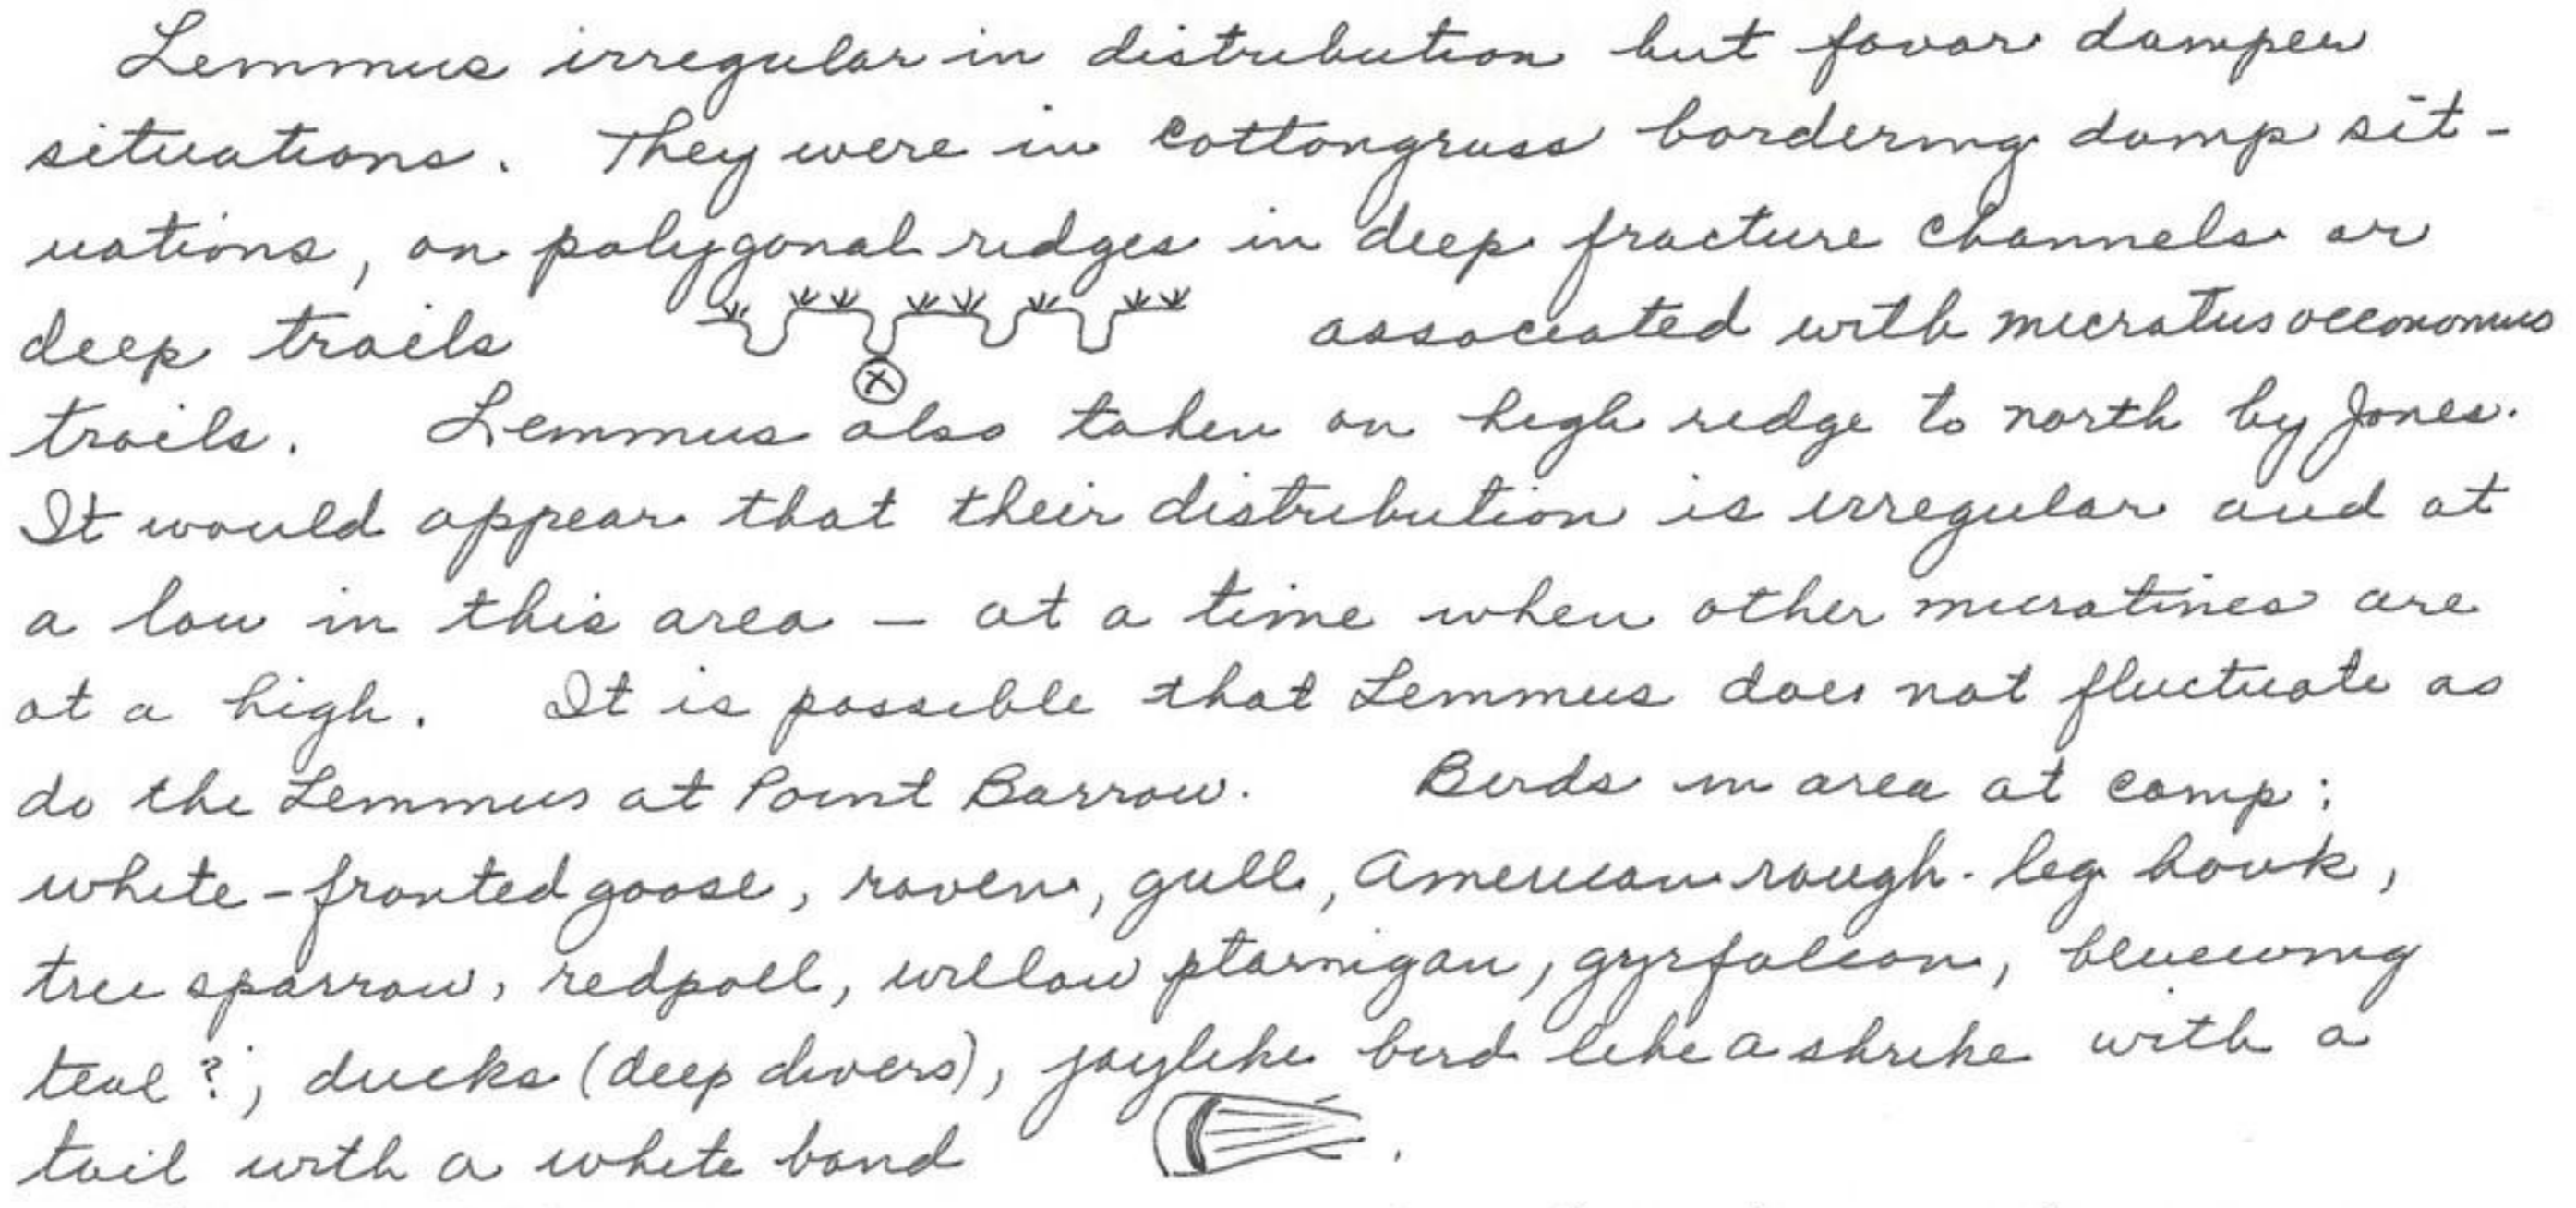 Lemmus irregular in distribution but favor damper
situations. They were in cottongrass bordering damp sit-
uations, on polygonal ridges in deep fracture channels or
deep trails associated with microtus oeconomus
X
trails. Lemmus also taken on high ridge to north by Jones.
It would appear that their distribution is irregular and at
a low in this area – at a time when other microtines are
at a high. It is possible that Lemmus does not fluctuate as
do the Lemmus at Point Barrow. Birds in area at camp:
white-fronted goose, raven, gull, American rough-leg hawk,
tree sparrow, redpoll, willow ptarmigan, gyrfalcon, bluewing
teal?, ducks (deep divers), jaylike bird like a shrike with a
tail with a white band .